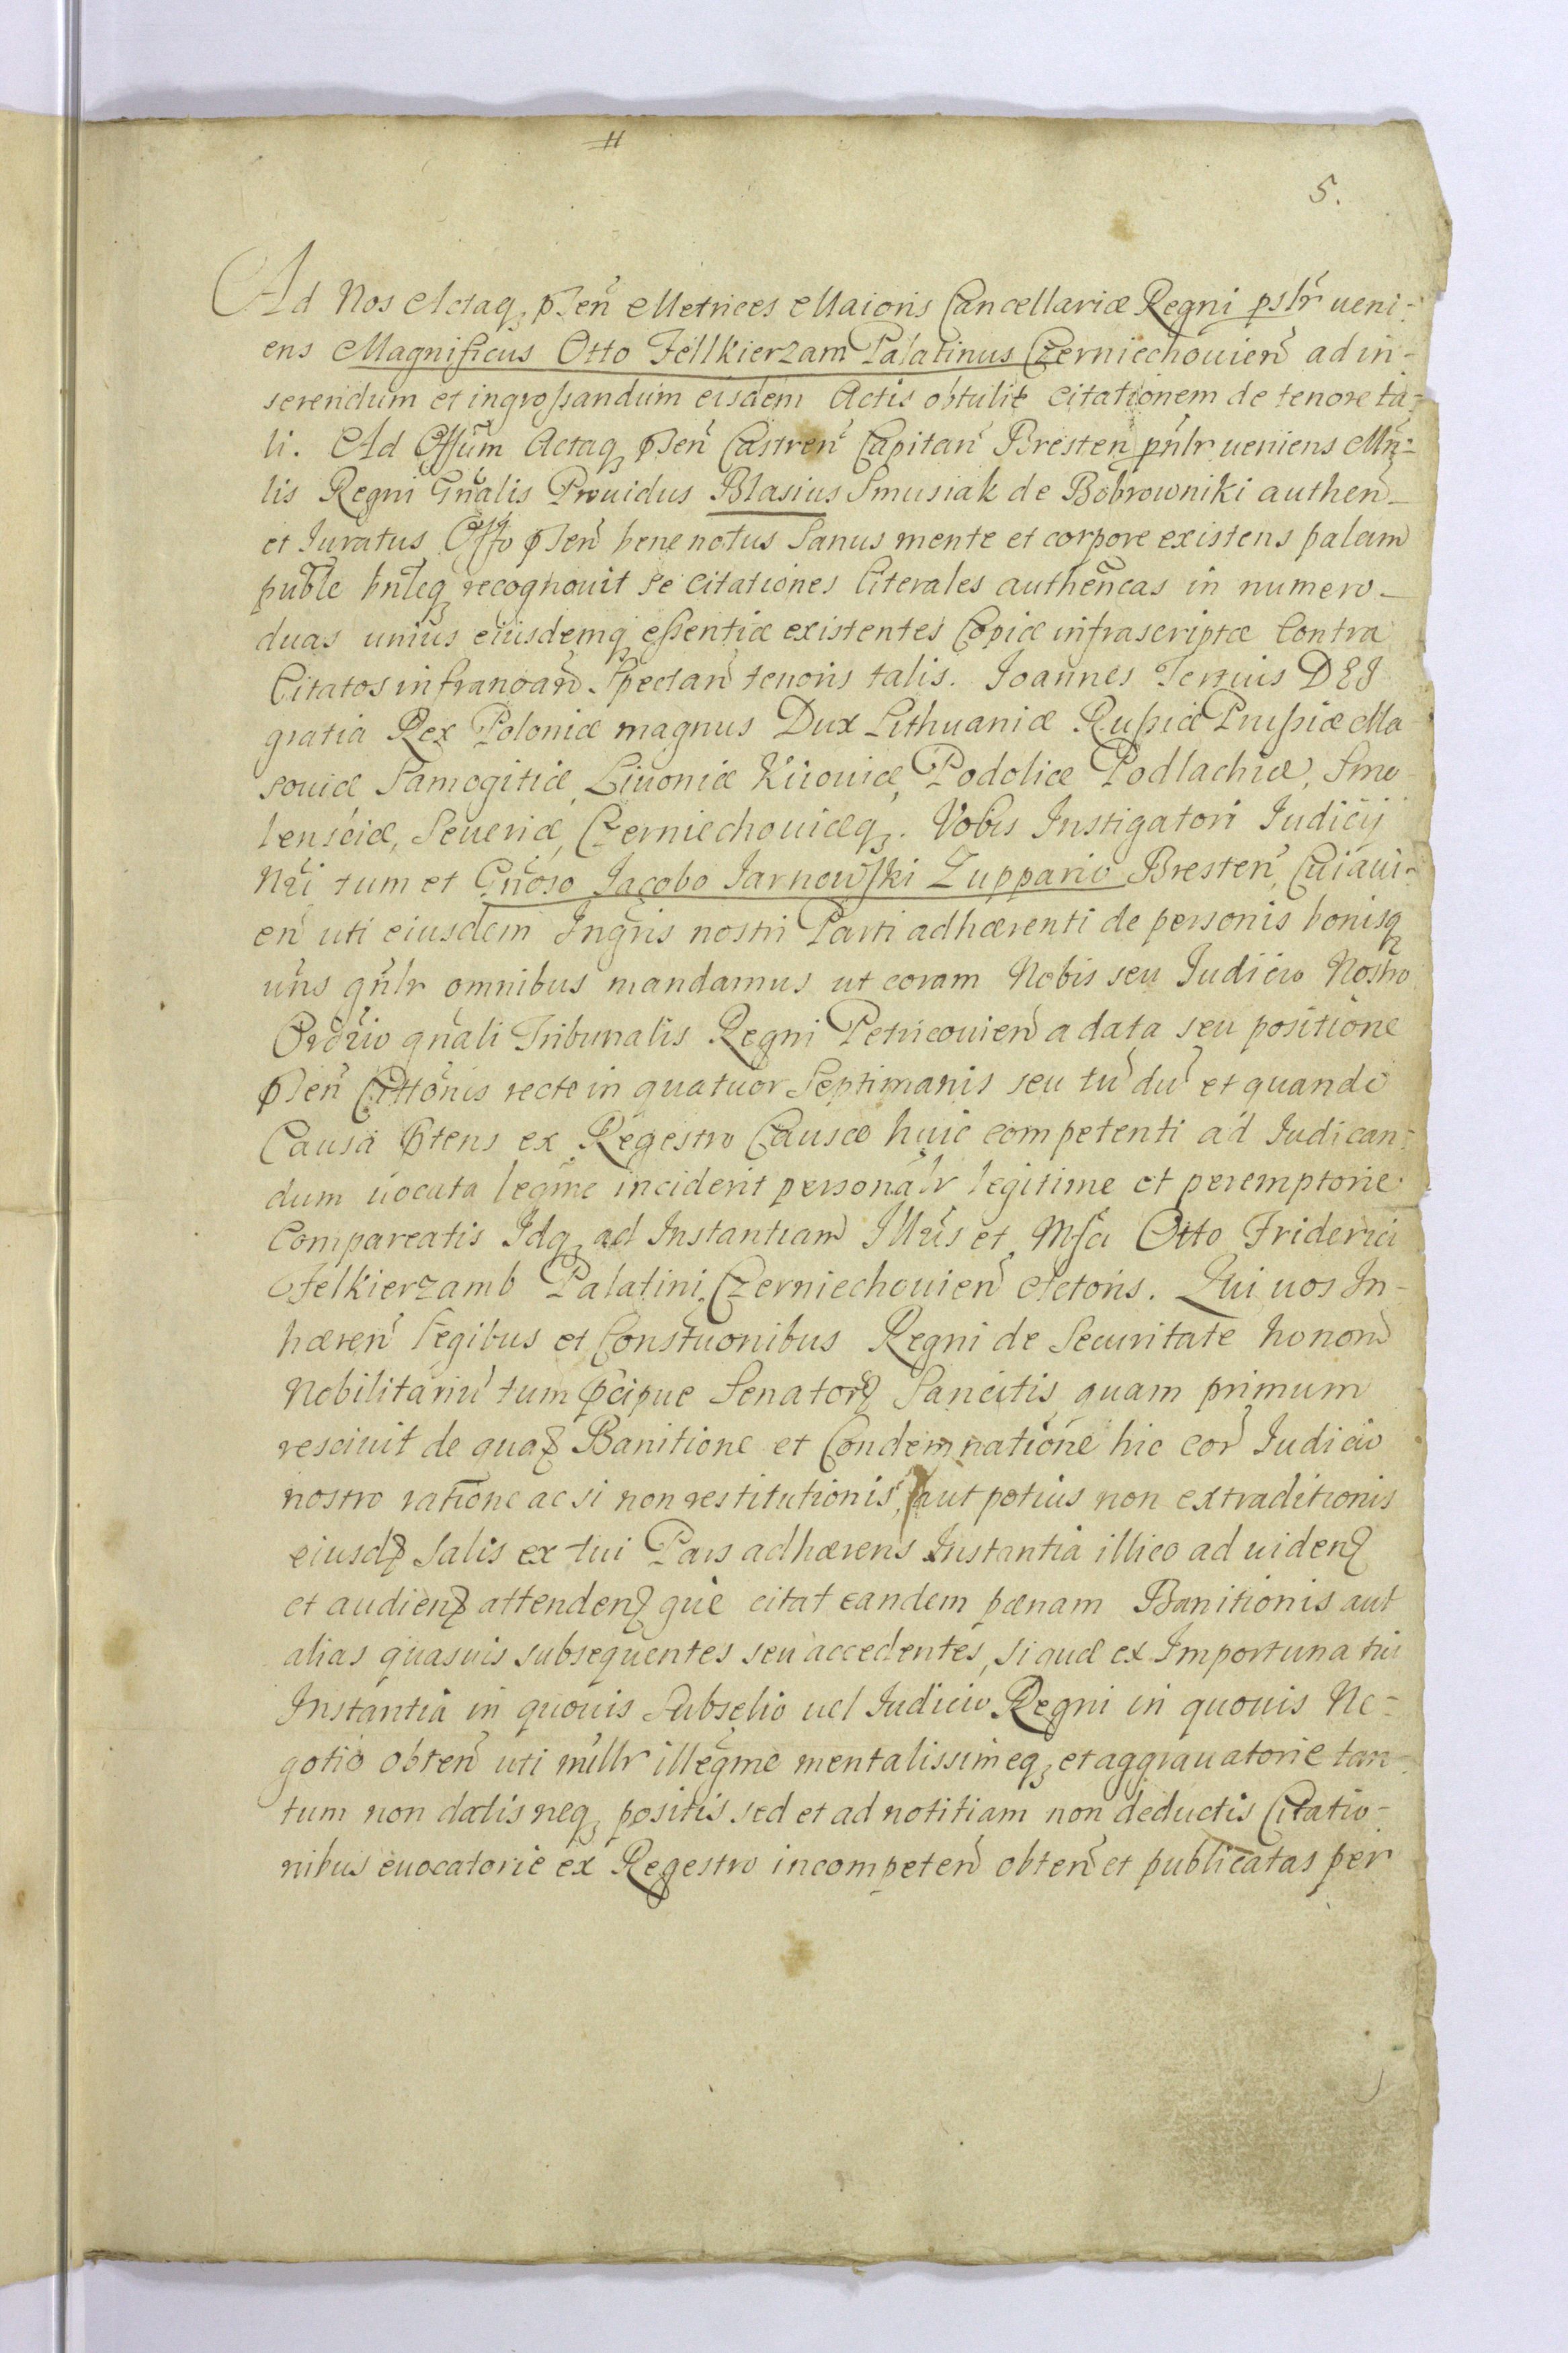 5.
Ad Nos Actaq; pnsen̄ Metrices Maioris Cancellariæ Regni pslr̄ ueni-
ens Magnificus Otto Fellkierzam Palatinus Czerniechouien̄ ad in-
serendum et ingrossandum eisdem Actis obtulit Citationem de tenore ta-
li. Ad Offūm Actaq; pnsen̄ Castren̄ Capitan̄ Bresten pn̄lr ueniens Mn̄-
lis Regni Gn̄alis Prouidus Blasius Smusiak de Bobrowniki authen_
et Iuratus Offo pnsen̄ bene notus Sanus mente et corpore existens palam
publē bn̄leq; recognouit se Citationes literales authen̄cas in numero_
duas unius eiusdemq; essentiæ existentes Copiæ infrascriptæ Contra
Citatos infranoan̄ Spectan̄ tenoris talis. Ioannes Tertius DEI
gratia Rex Poloniæ magnus Dux Lithuaniæ Russiæ Prussiæ Ma
souiæ Samogitiæ, Liuoniæ Kiiouiæ, Podoliæ Podlachiæ, Smo-
lensciæ, Seueriæ, Czerniechouiæq;. Vobis Instigatori Iudicij
Nr̄i tum et Gn̄oso Iacobo Iarnowski Zuppario Bresten̄ Cuiaui-
en̄ uti eiusdem Ingr̄is nostri Parti adhærenti de personis bonisq;
ur̄is gn̄lr omnibus mandamus ut coram Nobis seu Iudicio Nostro
Ordr̄io gn̄ali Tribunalis Regni Petricouien̄ a data seu positione
pnsen̄ Citton̄is recte in quatuor Septimanis seu tū dū et quando
Causa p̄tens ex Regestro Causæ huic competenti ad Iudican-
dum uocata legme inciderit personalr̄ legitime et peremptorie
Compareatis Idq; ad Instantiam Illr̄is et Mf̄ci Otto Friderici
Felkierzamb Palatini Czerniechouien̄ Actoris. Qui uos In-
hæren̄ Legibus et Constuonibus Regni de Securitate honorū
Nobilitariū tum p̄cipue Senator Sancitis quam primum
resciuit de quadam Banitione et Condemnatione hic cor̄ Iudicio
nostro ratione ac si non restitutionis, aut potius non extraditionis
eiusd Salis ex tui Pars adhærens Instantia illico ad uiden
et audien attenden que citat eandem pænam Banitionis aut
alias quasuis subsequentes seu accedentes, si quæ ex Importuna tui
Instantia in quouis Subselio uel Iudicio Regni in quouis Ne-
gotio obten̄ uti nullr̄ illegme mentalissimeq; et aggrauatorie tan-
tum non datis neq; positis sed et ad notitiam non deductis Citatio-
nibus euocatorie ex Regestro incompeten̄ obten̄ et publicatas per